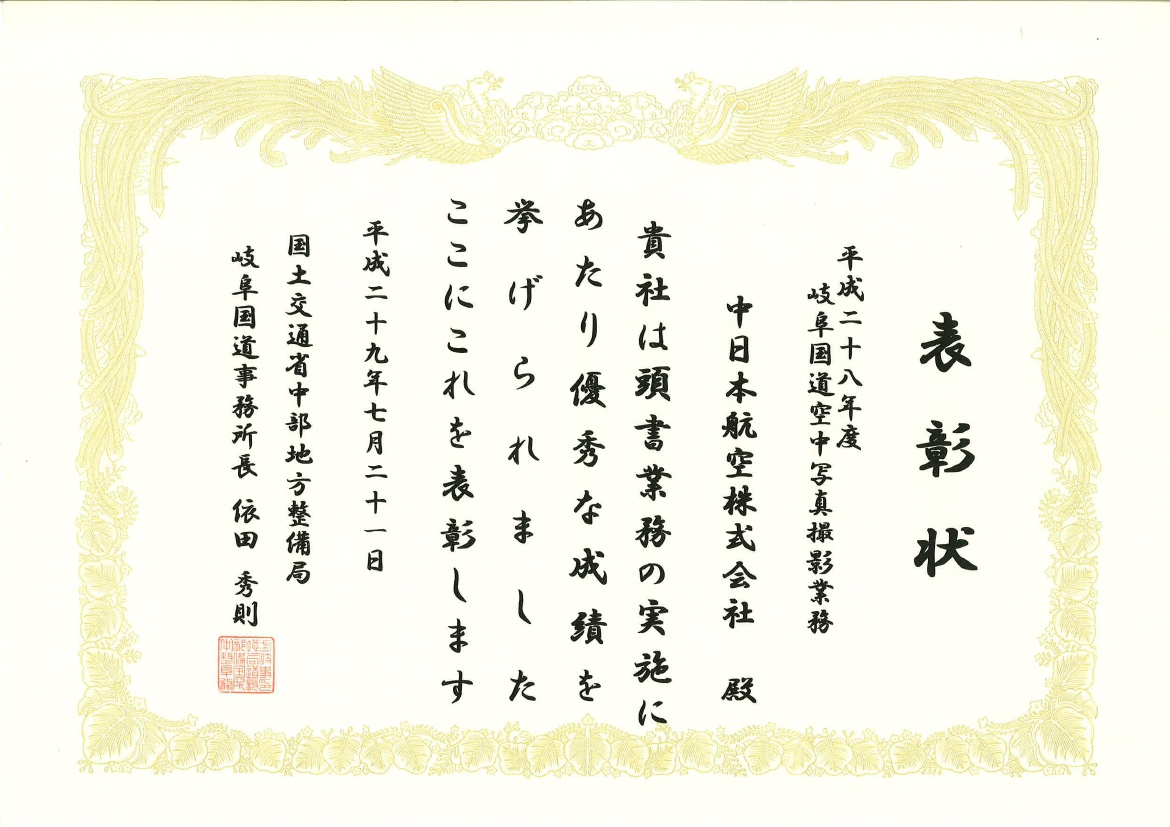 表彰状
平成二十八年度
岐阜国道空中写真撮影業務
中日本航空株式会社 殿
貴社は頭書業務の実施に
あたり優秀な成績を
挙げられました
ここにこれを表彰します
平成二十九年七月二十一日
国土交通省中部地方整備局
岐阜国道事務所長 依田 秀則